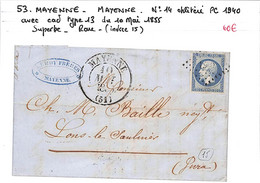 53. MAYENNE - MAYENNE. N° 14 oblitéré PC 1940
avec cad type 13 du 10 mai 1855
Superbe - Rare - (indice 15) 40€
FRÈRES
MAYENNE
MAYENNE
(51)
Monsieur
Ch. M. Baille
Lons-le-Saulnier
(Jura)
15